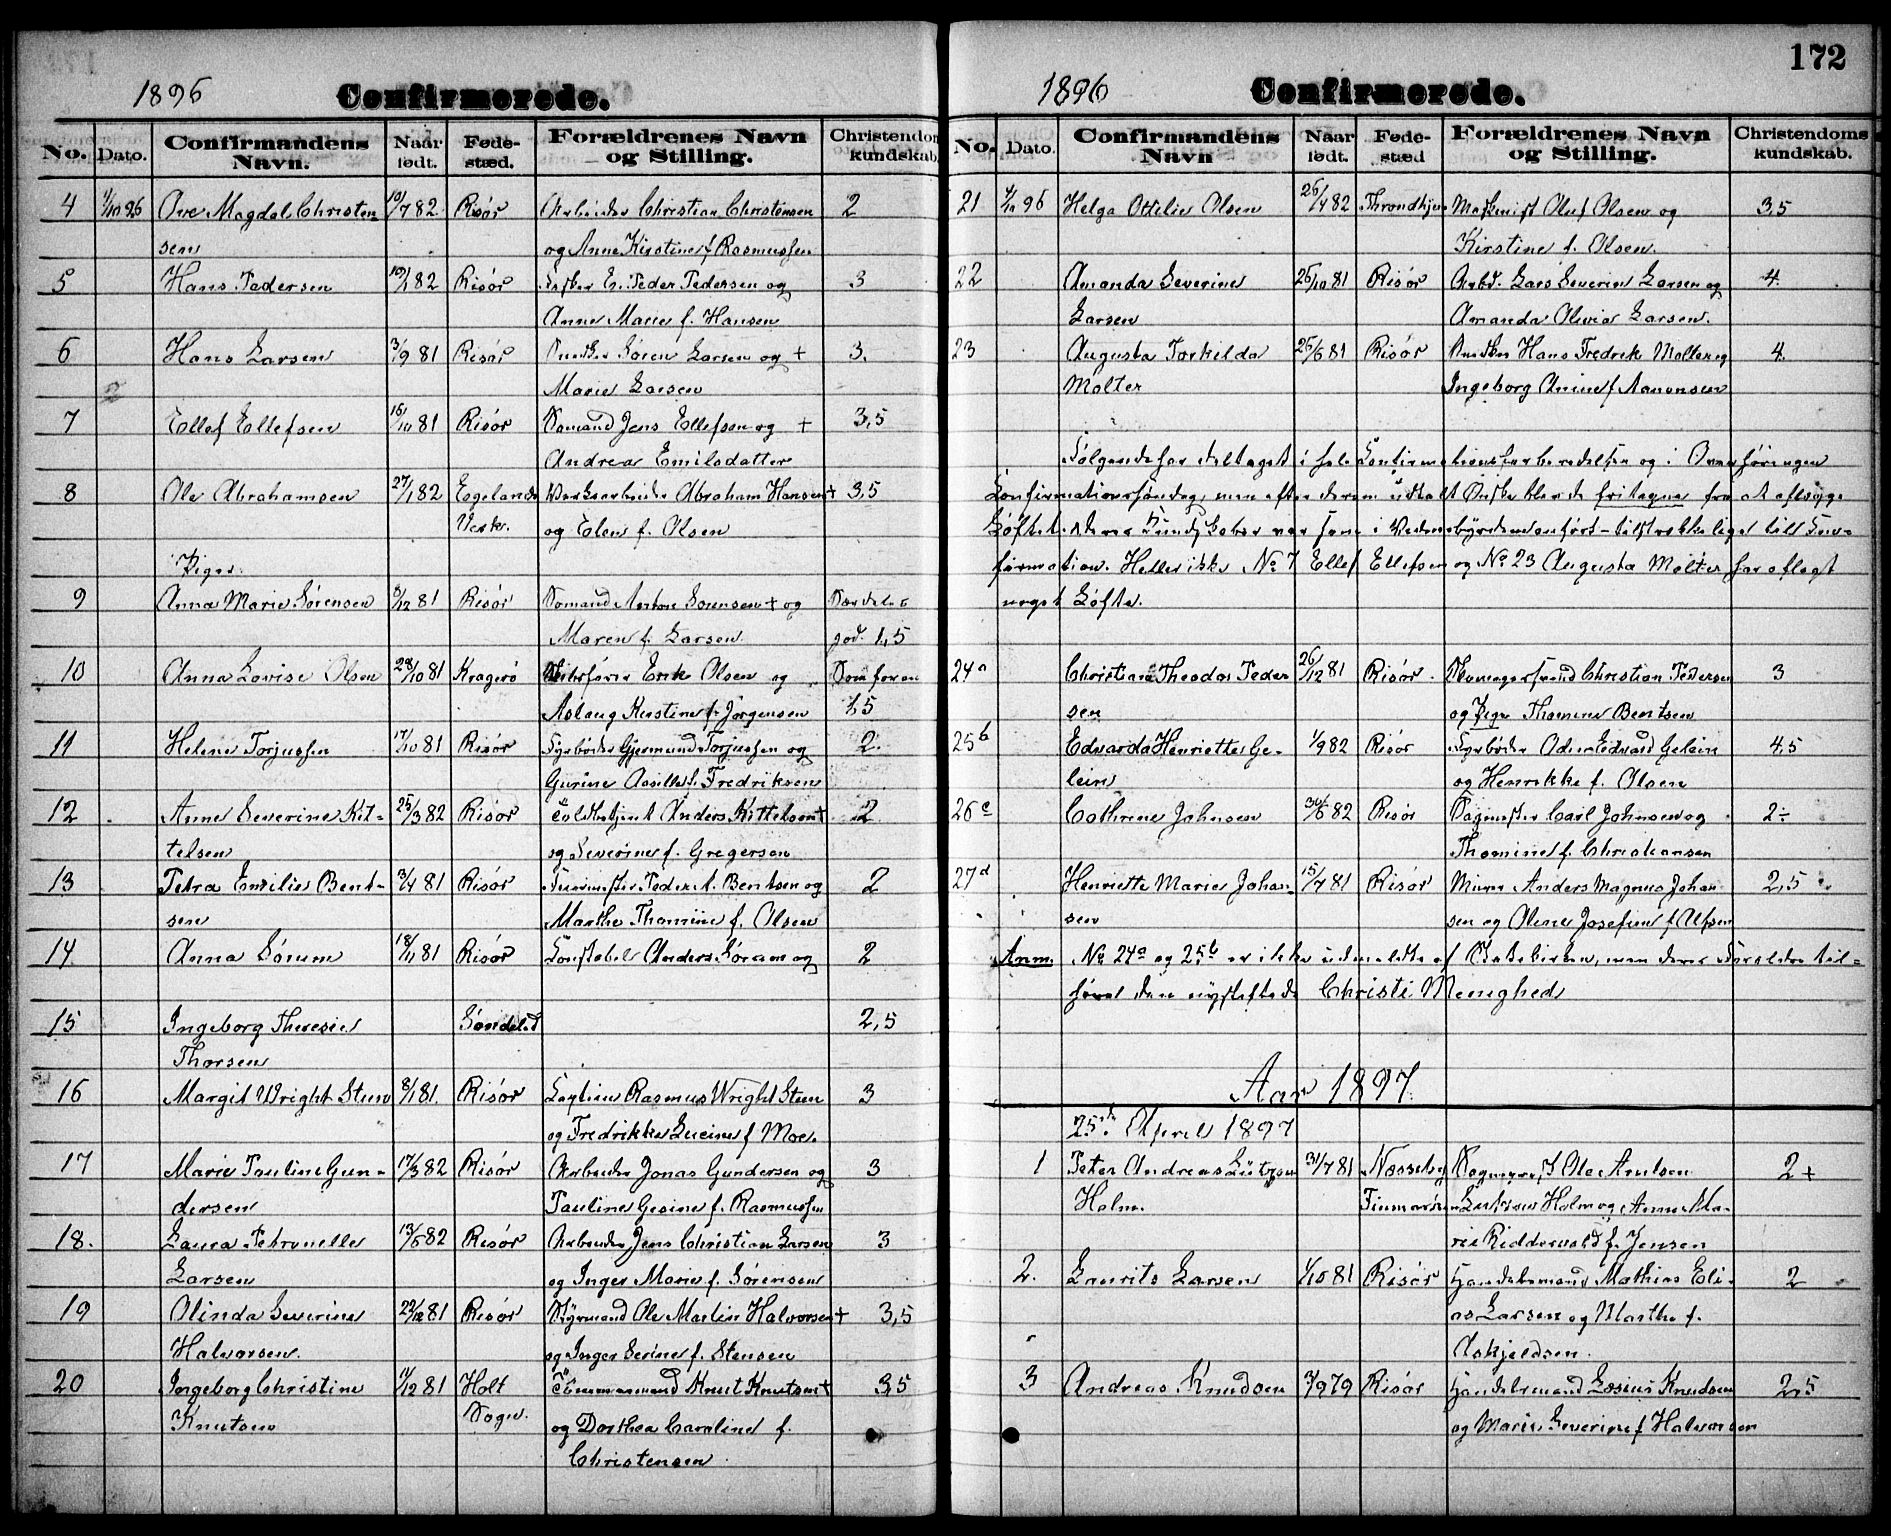 172
1896 Confirmerede.
No. Dato. Confirmandens Navn. Naar født. Fødested. Forældrenes Navn og Stilling. Christendomskundskab.
4 4/10 96 Ove Magdal. Christen 10/7 82 Risør Arbeider Christian Christensen 2
sen og Anne Kirstine f. Rasmussen
5 Hans Pedersen 10/1 82 Risør Peder Pedersen og 3
Anne Marie f. Hansen
6 Hans Larsen 3/9 81 Risør Snedker Søren Larsen og + 3.
Marie Larsen
7 Ellef Ellefsen 16/10 81 Risør Sømand Jens Ellefsen og + 3,5
Andrea Emilsdatter
8 Ole Abrahamsen 27/1 82 Egelands Værksarbeider Abraham Hansen + 3,5
Verk. og Elen f. Olsen
Piger.
9 Anna Marie Sørensen 8/12 81 Risør Sømand Anton Sørensen + og Særdeles
Maren f. Larsen. god. 1,5
10 Anna Lovise Olsen 28/10 81 Kragerø Erik Olsen og Som foran
Aslaug Kirstine f. Jørgensen 1,5
11 Helene Torjussen 17/10 81 Risør Fyrbøder Gjermund Torjussen og 2.
Gurine f. Fredriksen
12 Anne Severine Kit- 25/3 82 Risør Toldbetjent Anders Kittelsen + 2
telsen og Severine f. Gregersen
13 Petra Emilie Bent- 3/4 81 Risør Peder A. Bentsen og 2
sen Marthe Thomine f. Olsen
14 Anna Sørum 18/11 81 Risør Konstabel Anders Sørum og 2
15 Ingeborg Theresie Søndeled 2,5
Thorsen
16 Margit Wright Steen 8/1 81. Risør Captein Rasmus Wright Steen 3
og Fredrikke Lucine f. Moe.
17 Marie Pauline Gun- 17/3 82 Risør Arbeider Jonas Gundersen og 3
dersen Pauline Gesine f. Rasmussen
18. Laura Petronelle 13/6 82 Risør Arbeider Jens Christian Larsen 3
Larsen og Inger Marie f. Sørensen
19 Olinda Severine 22/12 81 Risør Styrmand Ole Martin Halvorsen + 3,5
Halvorsen. og Inger Serine f. Stensen
20 Ingeborg Christine 11/12 81 Holt Tømmermand Knut Knutsen + 3,5
Knutsen Sogn. og Dorthea Caroline f.
Christensen
1896 Confirmerede.
No. Dato. Confirmandens Navn Naar født. Fødested Forældrenes Navn og Stilling. Christendomskundskab.
21 4/10 96 Helga Ottilie Olsen 26/4 82 Throndhjem Maskinist Oluf Olsen og 3,5
Kirstine f. Olsen.
22 Amanda Severine 26/10 81 Risør Arbd. Lars Severin Larsen og 4.
Larsen Amanda Olivia Larsen.
23 Augusta Torkilda 26/6 81 Risør Snedker Hans Fredrik Molter og 4.
Molter Ingeborg Anine f. Aanonsen
Følgende har deltaget i hele Confirmationsforberedelsen og i Overhøringen
Confirmationssøndag, men efter deres udtalt Ønske blev de fritagne fra at aflægge
Løftet. deres Kundskaber var som i anført – tilstrækkelige till Con-
firmation. Heller ikke No 7 Ellef Ellefsen og No 23 Augusta Molter har aflagt
noget Løfte.
24a Christian Theodor Peder 26/12 81 Risør. Christian Pedersen 3
sen og Thomine Bentsen
25b Edvarda Henriette Ge- 1/9 82 Risør Fyrbøder Edvard Gelein 4,5
lein og Henrikke f. Olsen
26c Cathrine Johnsen 30/6 82 Risør Carl Johnsen og 2÷
Thomine f. Christiansen
27d Henriette Marie Johan- 15/7 81 Risør Murer Anders Magnus Johan 2,5
sen sen og Oline Josefine f. Alfsen
Anm. No 24a og 25b er ikke udmeldte af Statskirken, men deres Forældre til-
hører den nystiftede Christi Menighed
Aar 1897.
25de April 1897
1 Peter Andreas Lützow 31/7 81 Nesseby Ole Amlsen 2+
Holm. Finmarken Lützow Holm og Anne Ma-
rie Riddervold f. Jensen
2. Laurits Larsen 1/10 81 Risør Handelsmand Mathias Eli- 2
as Larsen og Marthe f.
Askjeldsen.
3 Andreas Knudsen 7/9 79 Risør Handelsmand Knudsen 2,5
og Maria Severine f. Halvorsen